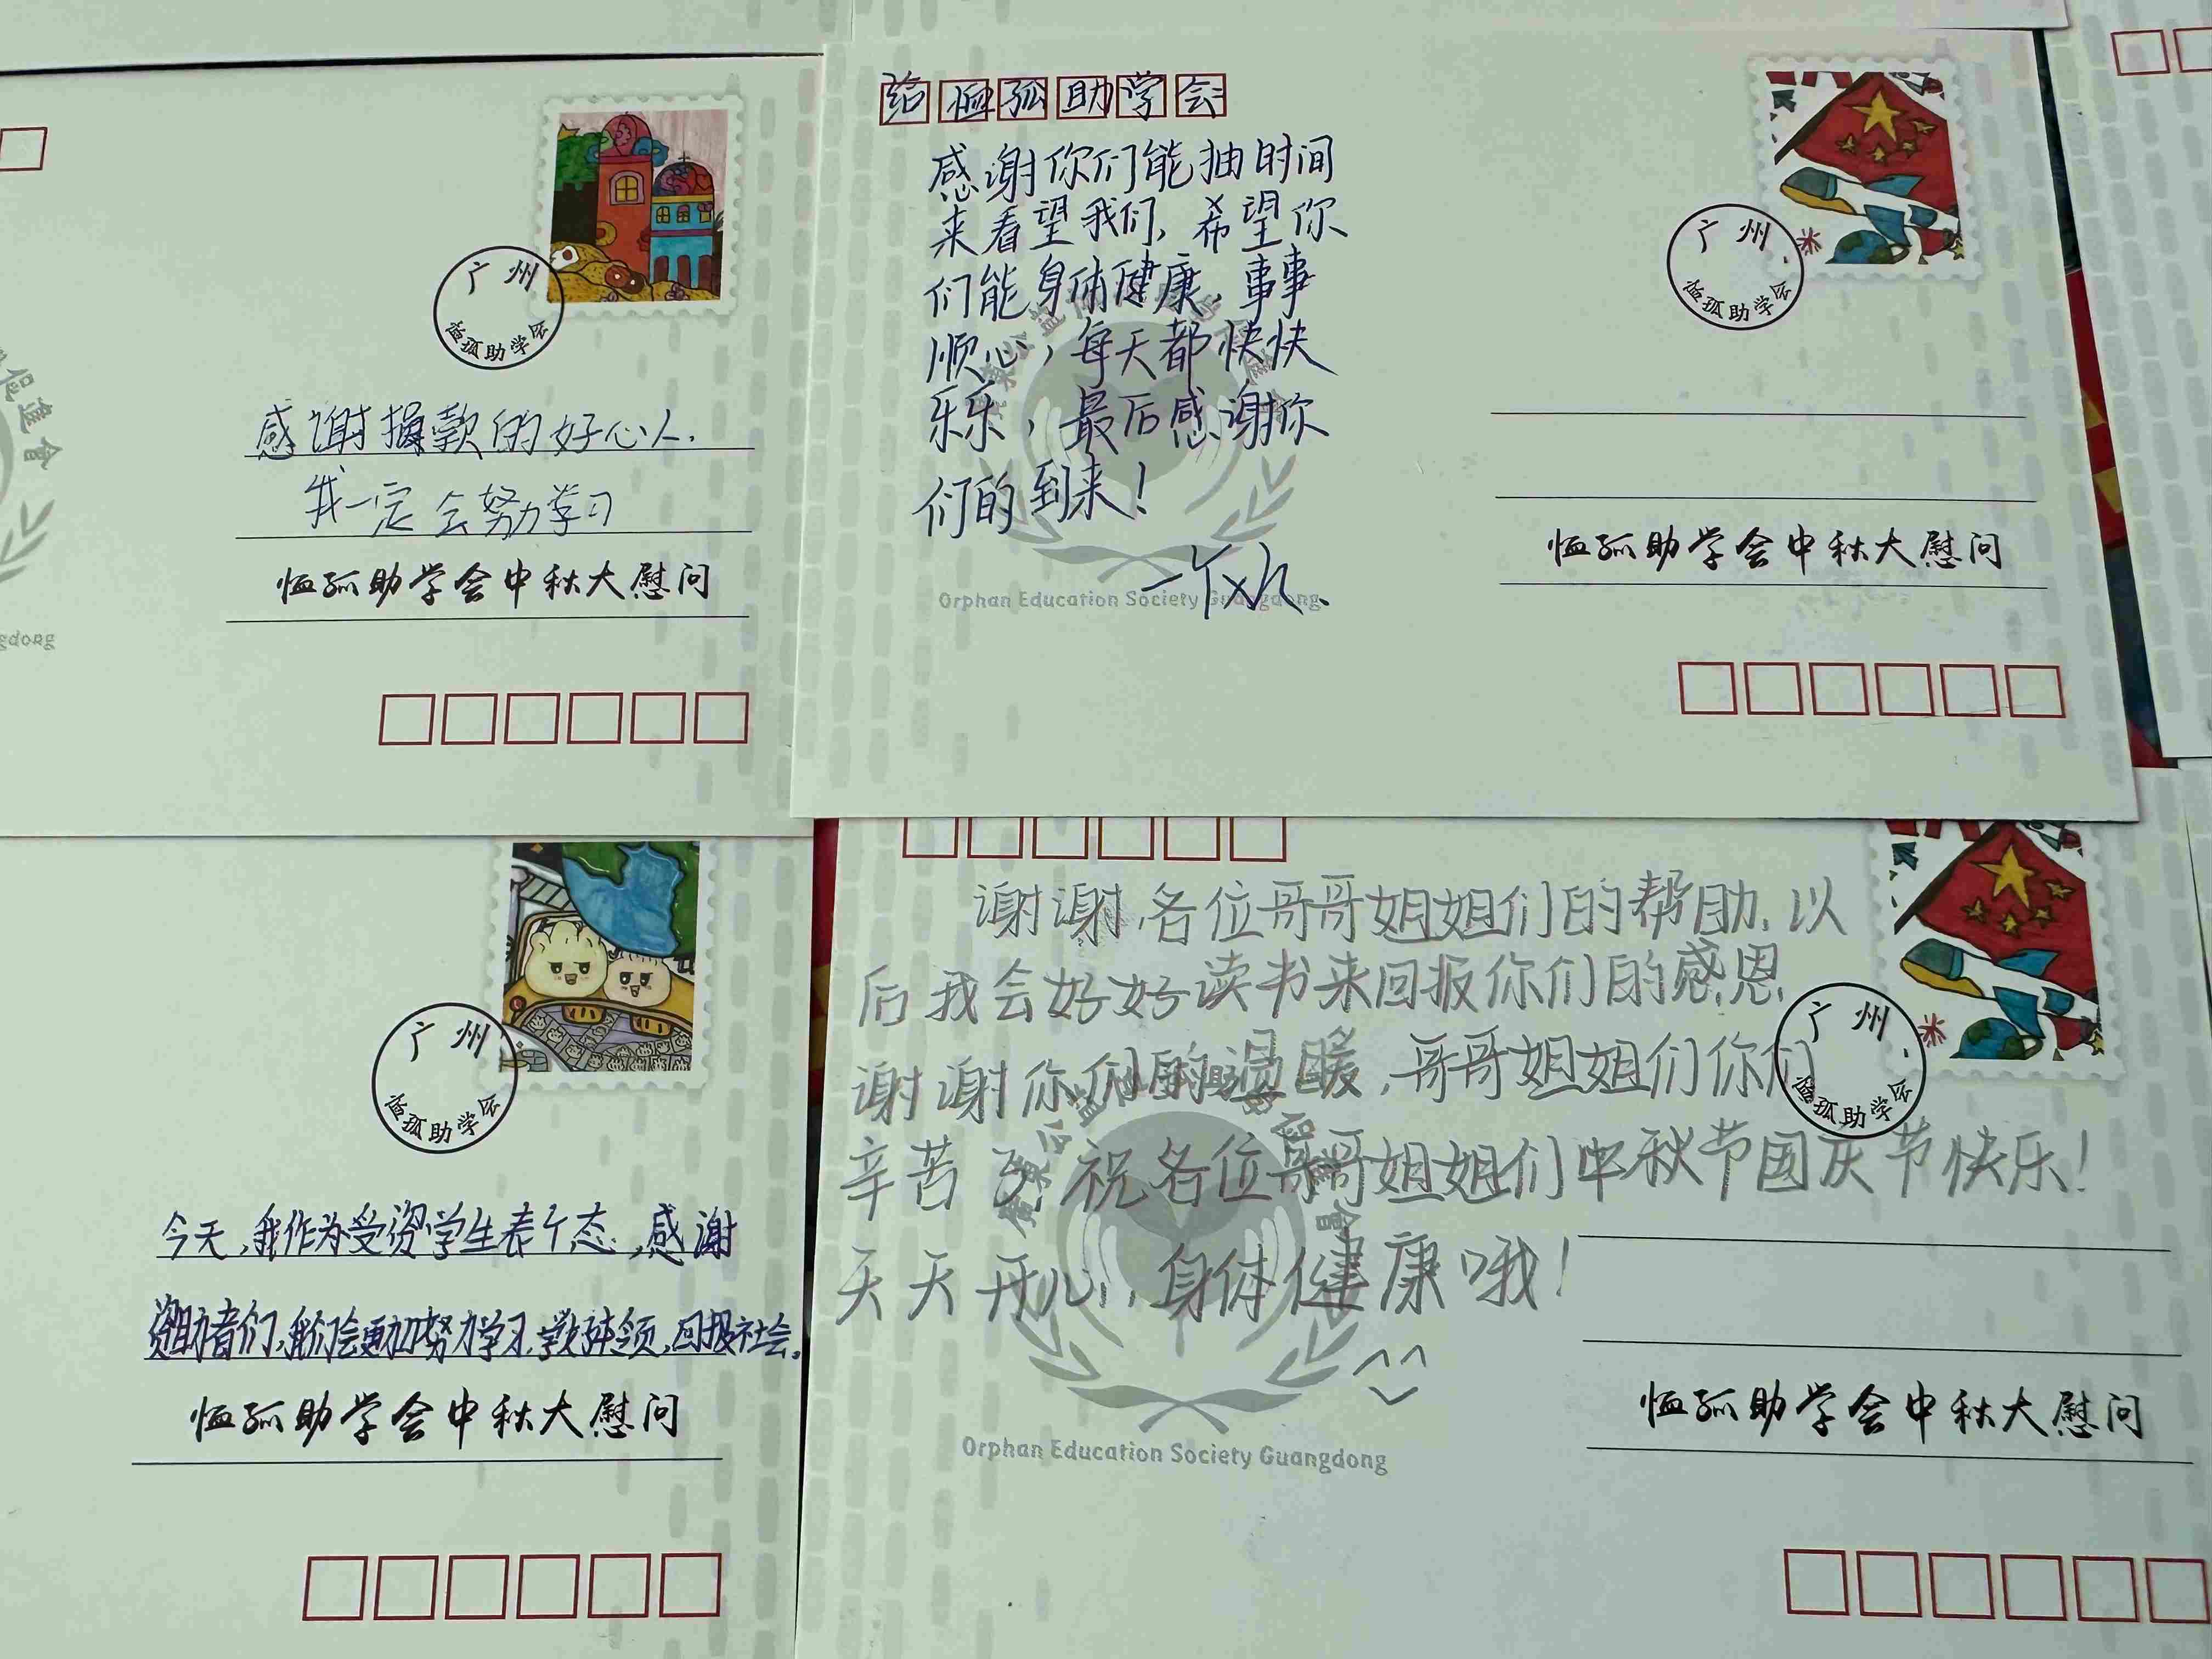 感谢捐款的好心人.
我一定会努力学习
恤孤助学会中秋大慰问
广州
恤孤助学会
gdong
给恤孤助学会
感谢你们能抽时间
来看望我们,希望你
们能身体健康,事事
顺心,每天都快快
乐乐,最后感谢你
们的到来!
Orphan Education Society Guangdong
广州
恤孤助学会
恤孤助学会中秋大慰问
广州
恤孤助学会
今天,我作为受资学生表个态,感谢
资助者们,我们会更加努力学习,学,回报社会。
恤孤助学会中秋大慰问
谢谢,各位哥哥姐姐们的帮助,以
后我会好好读书来回报你们的感恩,
谢谢你们的温暖,哥哥姐姐们你们
辛苦了 祝各位哥哥姐姐们中秋节国庆节快乐!
天天开心,身体健康哦!
广州
恤孤助学会
Orphan Education Society Guangdong
恤孤助学会中秋大慰问